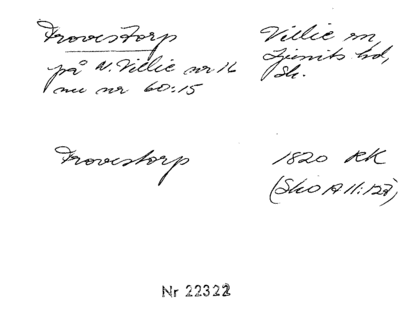 Trovestorp Villie sn,
på N. Villie nr 16 Ljunits hd,
nu nr 60:15 Sk.
Trovestorp 1820 RK
(Sko A II:12a)
Nr 22322